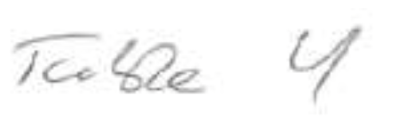 Table 4